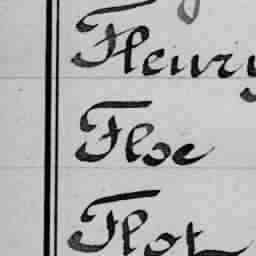 Fleury
Floe
Flot